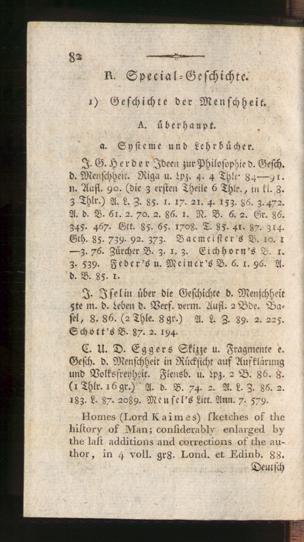 82
R. Special-Geschichte.
1) Geschichte der Menschheit.
A. überhaupt.
a. Systeme und Lehrbücher.
J. G. Herder Jdeen zur Philosophie d. Gesch.
d. Menschheit. Riga u. Lpz. 4. 4 Thlr 84—91.
n. Aufl. 90. (die 3 ersten Theile 6 Thlr., in kl. 8.
3 Thlr.) A. L. Z. 85. 1. 17. 21. 4. 153. 86. 3. 472.
A. d. B. 61. 2. 70. 2. 86. 1. N. B. 6. 2. Gr. 86.
345. 467. Gtt. 85. 65. 1708. T. 85. 41. 87. 314.
Gth. 85. 739. 92. 373. Bacmeister's B. 10. 1
—3. 76. Zürcher B. 3, 1, 3. Eichhorn's B. 1.
3. 539. Feder's u. Meiner's B. 6. 1. 96. A.
d. B. 85. 1.
J. Iselin über die Geschichte d. Menschheit
5te m. d. Leben d. Verf. verm. Aufl. 2 Bde. Ba-
sel, 8. 86. (2 Thle. 8 gr.) A. L. Z. 89. 2. 225.
Schott's B. 87. 2. 194.
C. U. D. Eggers Skizze u. Fragmente e.
Gesch. d. Menschheit in Rücksicht auf Aufklärung
und Volksfreyheit. Flensb. u. Lpz. 2 B. 86. 8.
(1 Thlr. 16 gr.) A. d. B. 74. 2. A. L. Z. 86. 2.
183. L. 87. 2089. Meusel's Litt. Ann. 7. 579.
Homes (Lord Kaimes) sketches of the
history of Man; considerably enlarged by
the last additions and corrections of the au-
thor, in 4 voll. gr8. Lond. et Edinb. 88.
Deutsch